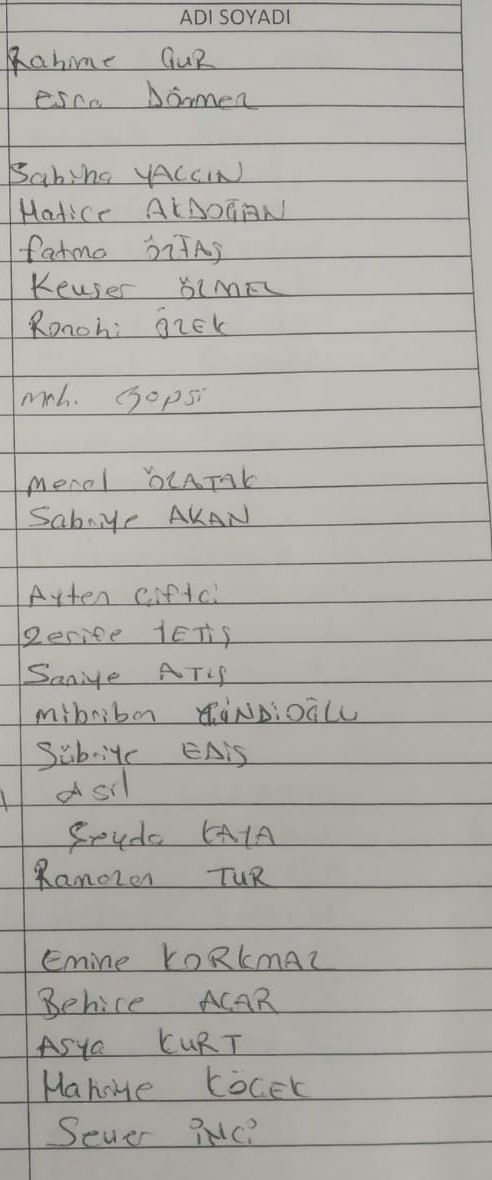 ADI SOYADI
Rahime GUR
Esra Dönmez
Sabiha YALÇIN
Hatice AKDOĞAN
Fatma ÖZTAŞ
Kevser ÖLMEZ
Ronahi ÖZEK
Meral ÖZATAK
Sabriye AKAN
Ayten Çiftci
Zerife YETİŞ
Saniye ATIŞ
Mihriban EFİNDİOĞLU
Sübriye EDİŞ
Asıl
Şeyda KAYA
Ramazan TUR
Emine KORKMAZ
Behice ACAR
Asya KURT
KÖÇEK
Sever İNCİ